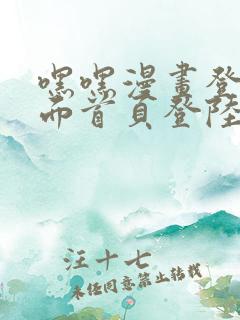 嘿嘿漫畫登
面首頁登陸
汪十七
未经同意禁止转载